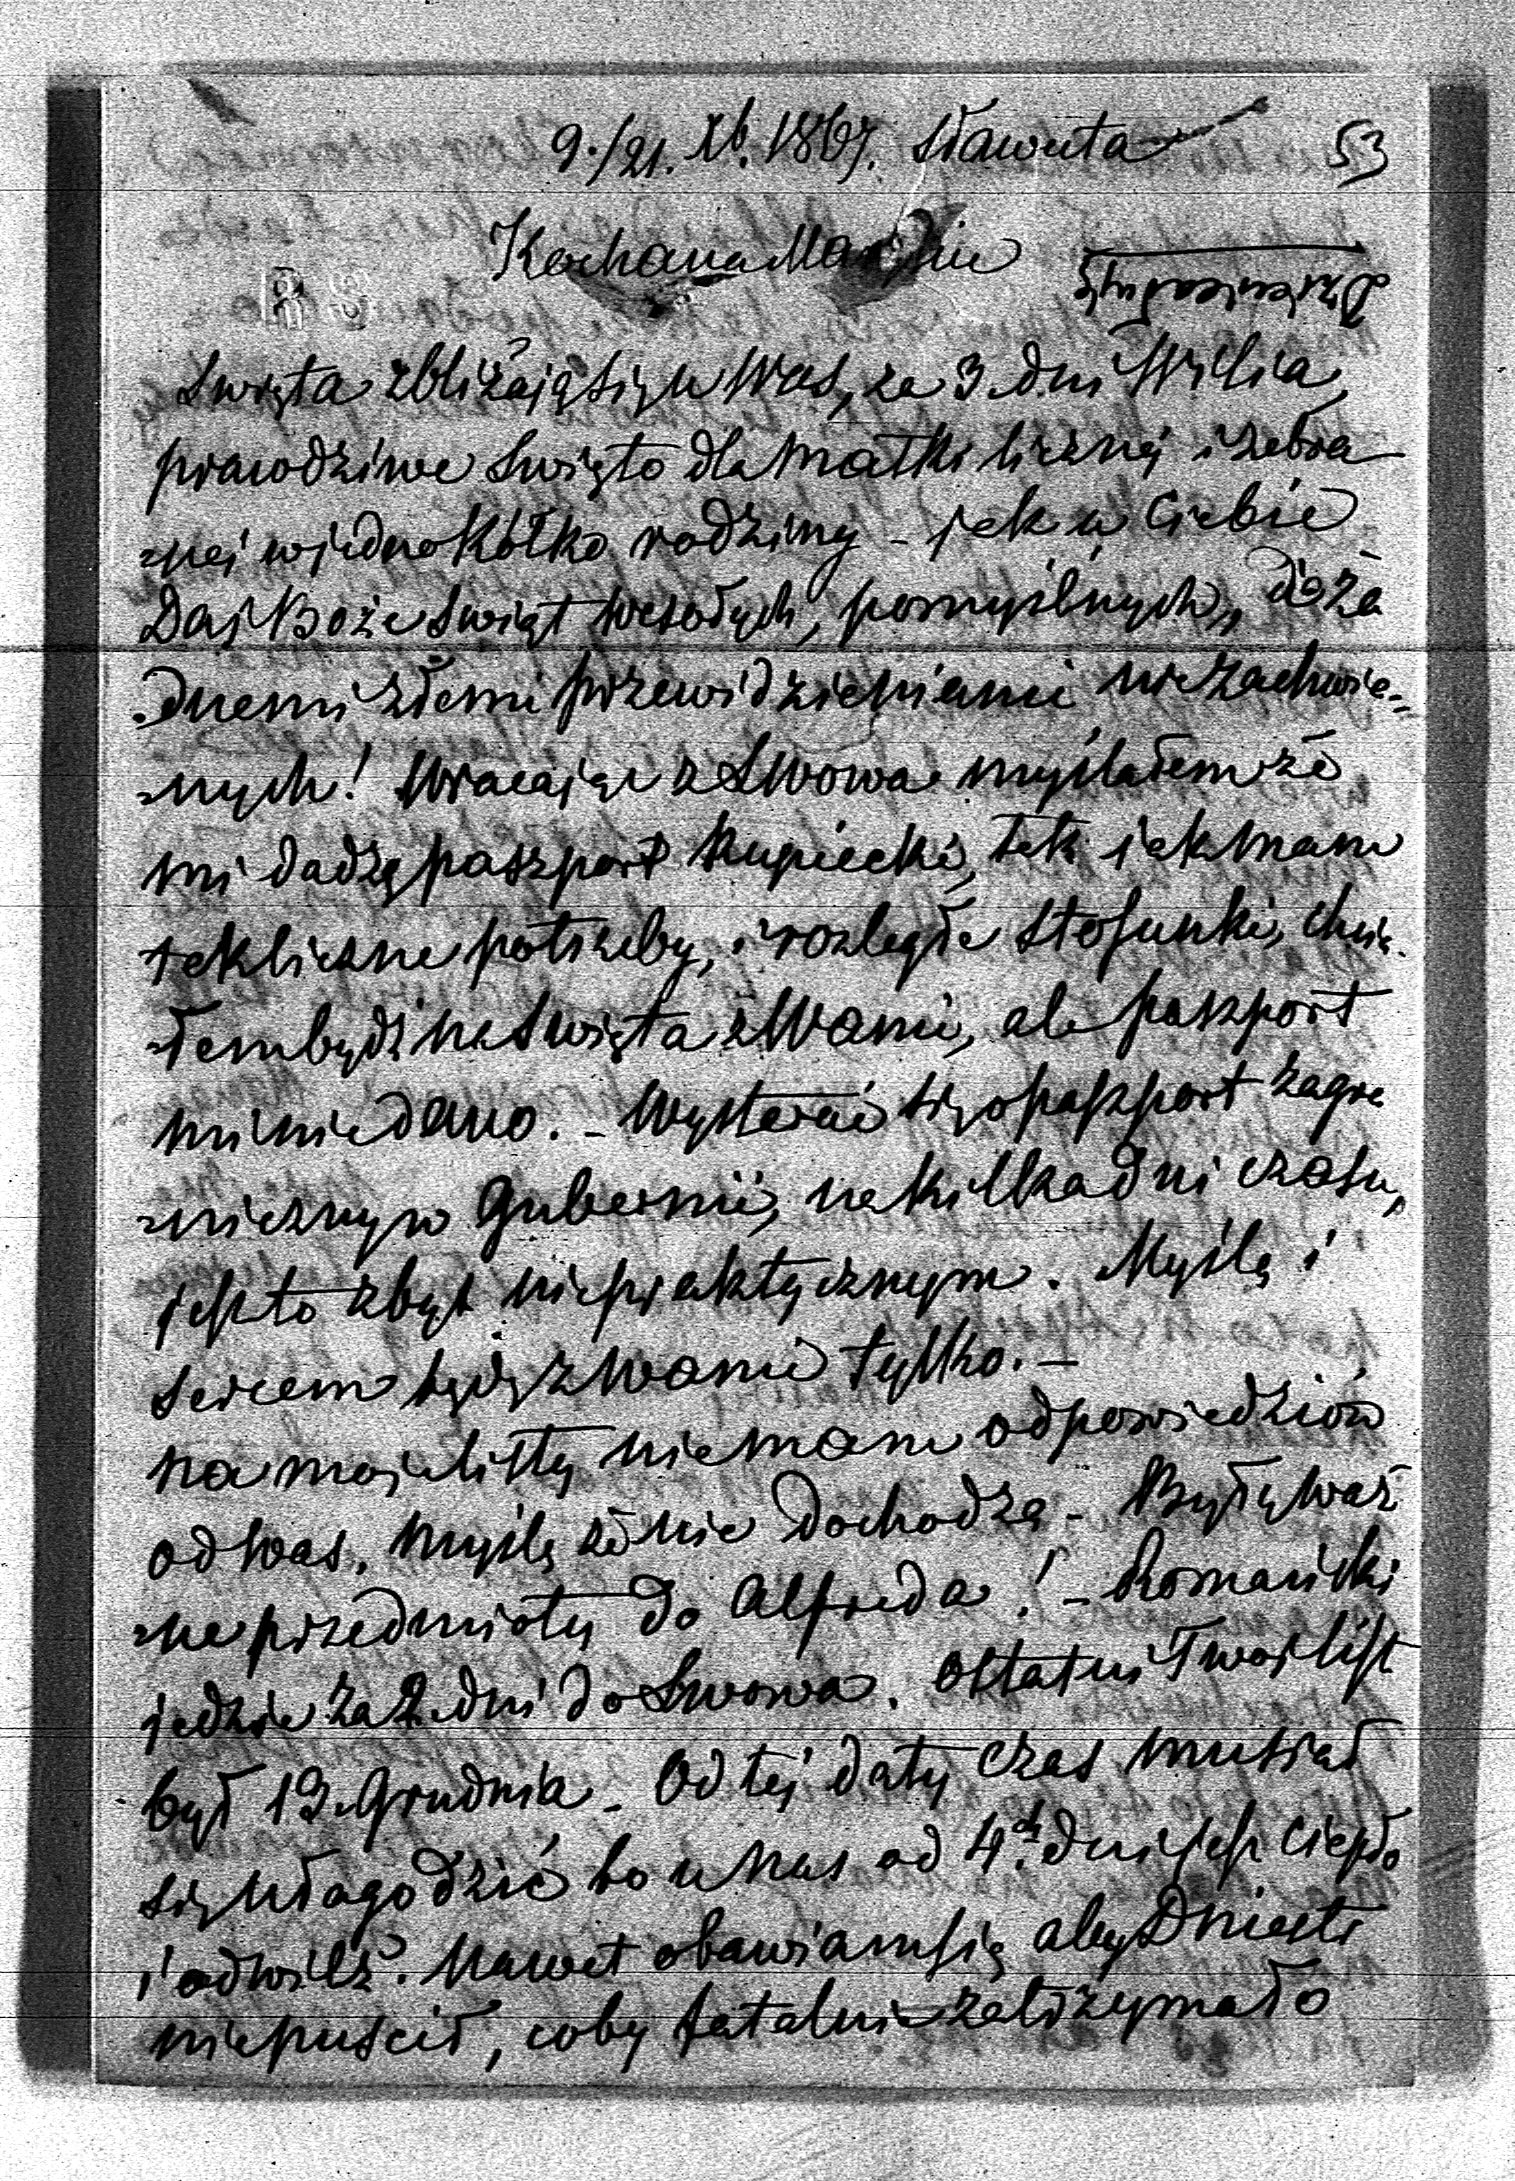 9./21. Xb. 1867. Sławuta
53
Kochana Maryniu
Święta zbliżają się u Was, za 3. dni Wilia,
prawdziwe święto dla matki licznej i zebra
=nej w jedno kółko rodziny – jak u Ciebie
Daj Boże Świąt wesołych, pomyślnych, i ża
=dnemi złemi przewidzieniami niezachwia=
=nych! Wracając z Lwowa myślałem że
mi dadzą paszport kupiecki, tak jak mam
tak liczne potrzeby, i rozległe stosunki, chcia
=łem bydź na Święta z Wami, ale paszport
mi nie dano. – Wystarać się o paszport zagra
=niczny w Gubernii, na kilka dni czasu,
jest to zbyt niepraktycznym. Myślą i
sercem będę z Wami tylko. –
Na moje listy nie mam odpowiedziów
od Was. Myślę że nie dochodzą – Były waż
=ne przedmioty do Alfreda! – Romański
jedzie za 2. dni do Lwowa. Ostatni Twój list
był 19. Grudnia – Od tej daty czas musiał
się ułagodzić bo u nas od 4.ch dni jest ciepło
i odwilż. Nawet obawiam się aby Dniestr
nie puścił, coby fatalnie zatrzymało